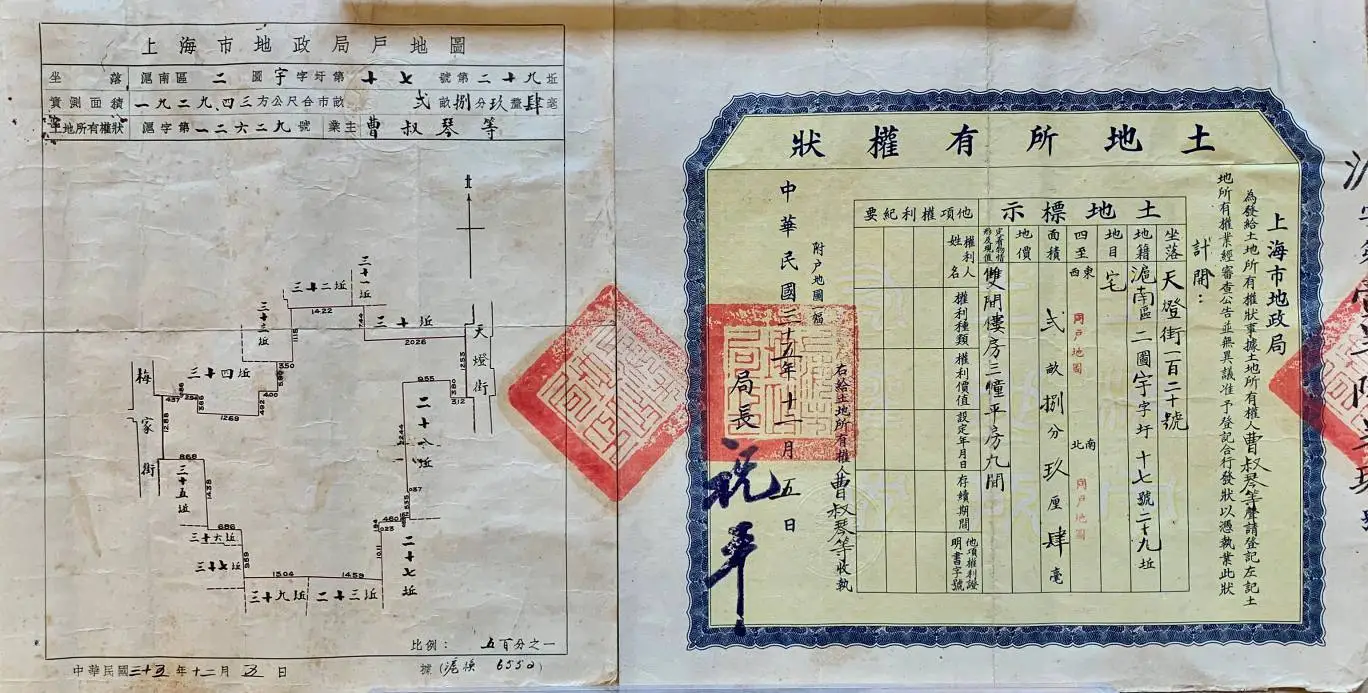 上海市地政局戶地圖
坐落 滬南區二圖宇字圩第十七號第二十九坵
實測面積 一九二九.四三方公尺合市畝 弍畝捌分玖釐肆毫
土地所有權狀 滬字第一二六二九號 業主 曹叔琴等
北
三十一坵
三十二坵
14.22
7.44
三十坵
20.26
三十三坵
11.15
12.55
天燈街
3.50
三十四坵
4.00
4.92
12.69
3.66
2.94
4.37
梅家街
12.88
9.55
3.80
3.12
二十八坵
8.68
三十五坵
14.38
6.86
三十六坵
9.59
三十七坵
15.04
14.59
三十九坵
二十三坵
10.11
4.60
0.23
二十七坵
比例：五百分之一
中華民國三十五年十二月五日
土地所有權狀
上海市地政局
為發給土地所有權狀事據土地所有權人曹叔琴等聲請登記左記土
地所有權業經審查公告並無異議准予登記合行發狀以憑執業此狀
計開：
土地標示
坐落 天燈街一百二十號
地籍 滬南區二圖宇字圩十七號二十九坵
地目 宅
四至 東 西 同戶地圖 南 北 同戶地圖
面積 弍畝捌分玖厘肆毫
地價
定着物情形及現值 雙間樓房三幢平房九間
他項權利紀要
權利人姓名
權利種類
權利價值
設定年月日
存續期間
他項權利證明書字號
附戶地圖一幅
右給土地所有權人曹叔琴等收執
中華民國三十五年十一月五日
局長 祝平